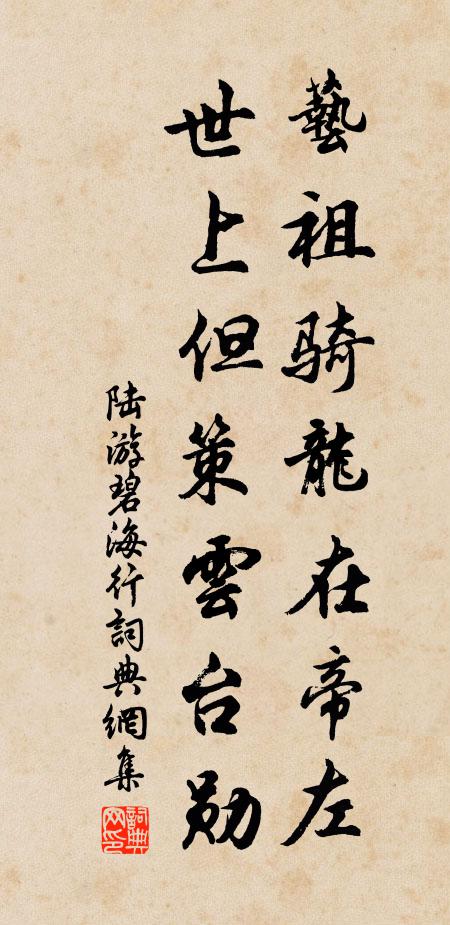 藝祖騎龍在帝左
世上但策雲台勛
陆游碧海行詞典網集
詞典网印